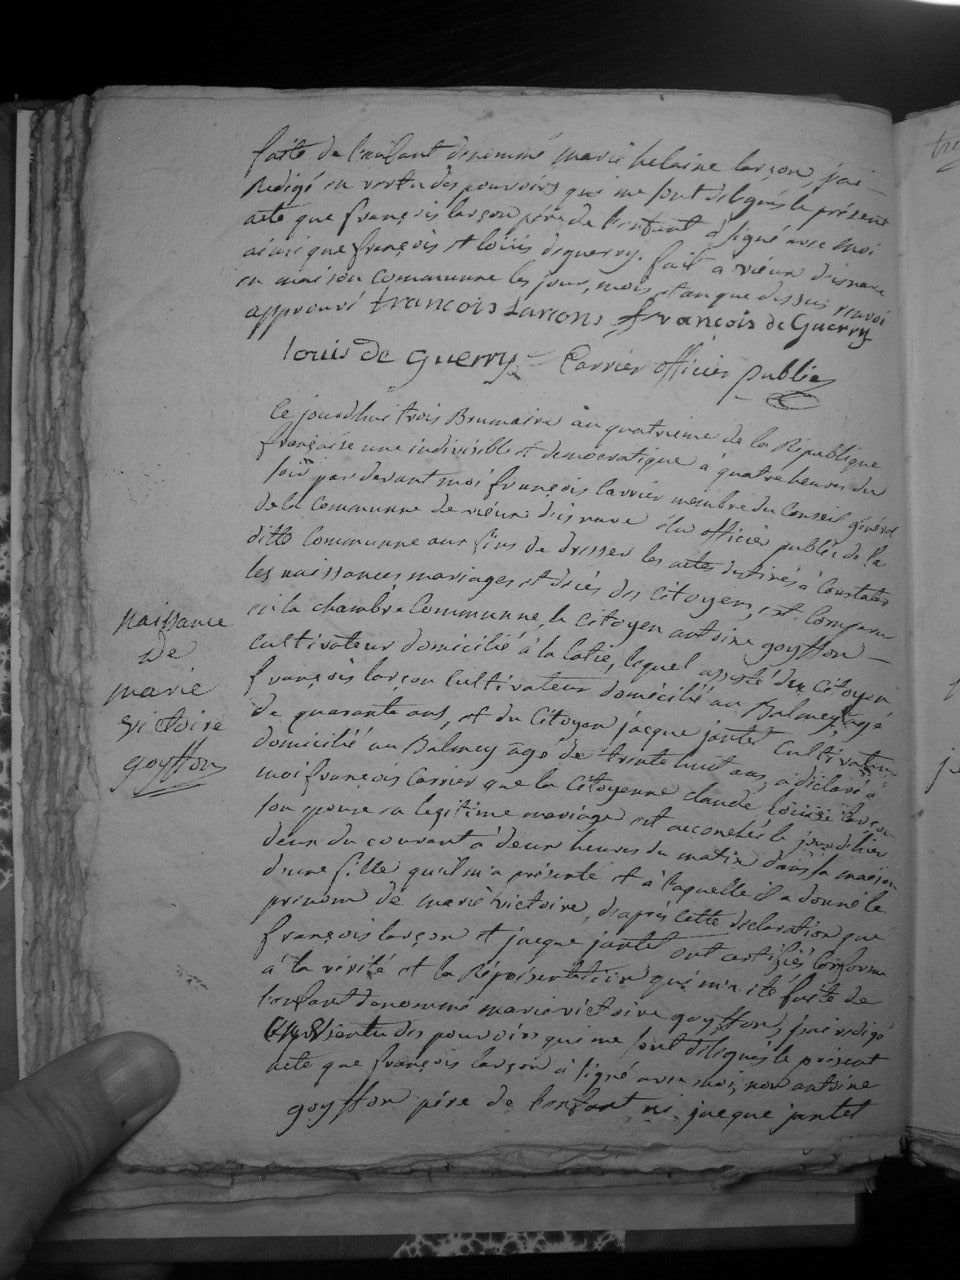 faite de l'enfant denommé marie helaine larçon, j'ai
Redigé en vertu des pouvoirs qui me sont délegués le présent
acte que françois larçon père de l'enfant a signé avec moi
ainsi que françois et loüis deguerry. fait a vieux d'isnave
en maison communne les jour, mois et an que dessus renvoi
approuvé francois Larcons françois de Guerry
louis De guerry Carrier officier public
Ce jourdhui trois Brumaire an quatrieme de la République
française une indivisible et democratique à quatre heures du
soir par devant moi françois Carrier membre du Conseil général
de la Communne de vieux d'isnave élu officier public de la
ditte Communne aux fins de dresser les actes destinés à Constater
les naissances mariages et décès des Citoyens, est Comparu
en la chambre Communne, le Citoyen antoine goyffon
cultivateur domicilié à la latie, lequel assisté du Citoyen
françois larçon Cultivateur domicilié au Balmey agé
de quarante ans, et du Citoyen jacque jantet Cultivateur
domicilié au Balmey âgé de trente huit ans, a déclaré à
moi françois Carrier que la Citoyenne claude loüise larçon
son epouse en legitime mariage est accouchée le jour d'hier
deux du courant à deux heures du matin dans sa maison
d'une fille qu'il m'a présenté et à laquelle il a donné le
prénom de marie victoire, d'après cette declaration que
françois larçon et jacque jantet ont certifiés Conforme
à la vérité et la Réprésentation qui m'a été faite de
l'enfant denommé marie victoire goyffon, j'ai redigé
en vertu des pouvoirs qui me sont délegués le présent
acte que françois larçon a signé avec moi, non antoine
goyffon père de l'enfant ni jacque jantet
naissance
de
marie
victoire
goyffon